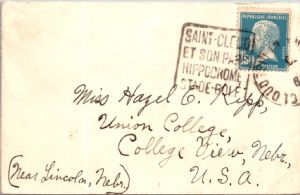 SAINT-CLOUD
ET SON PARC
HIPPODROME
STADE-GOLF
RÉPUBLIQUE FRANÇAISE
PASTEUR
Miss Hazel E. Kipp,
Union College,
College View, Nebr.,
U.S.A.
(Near Lincoln, Nebr.)